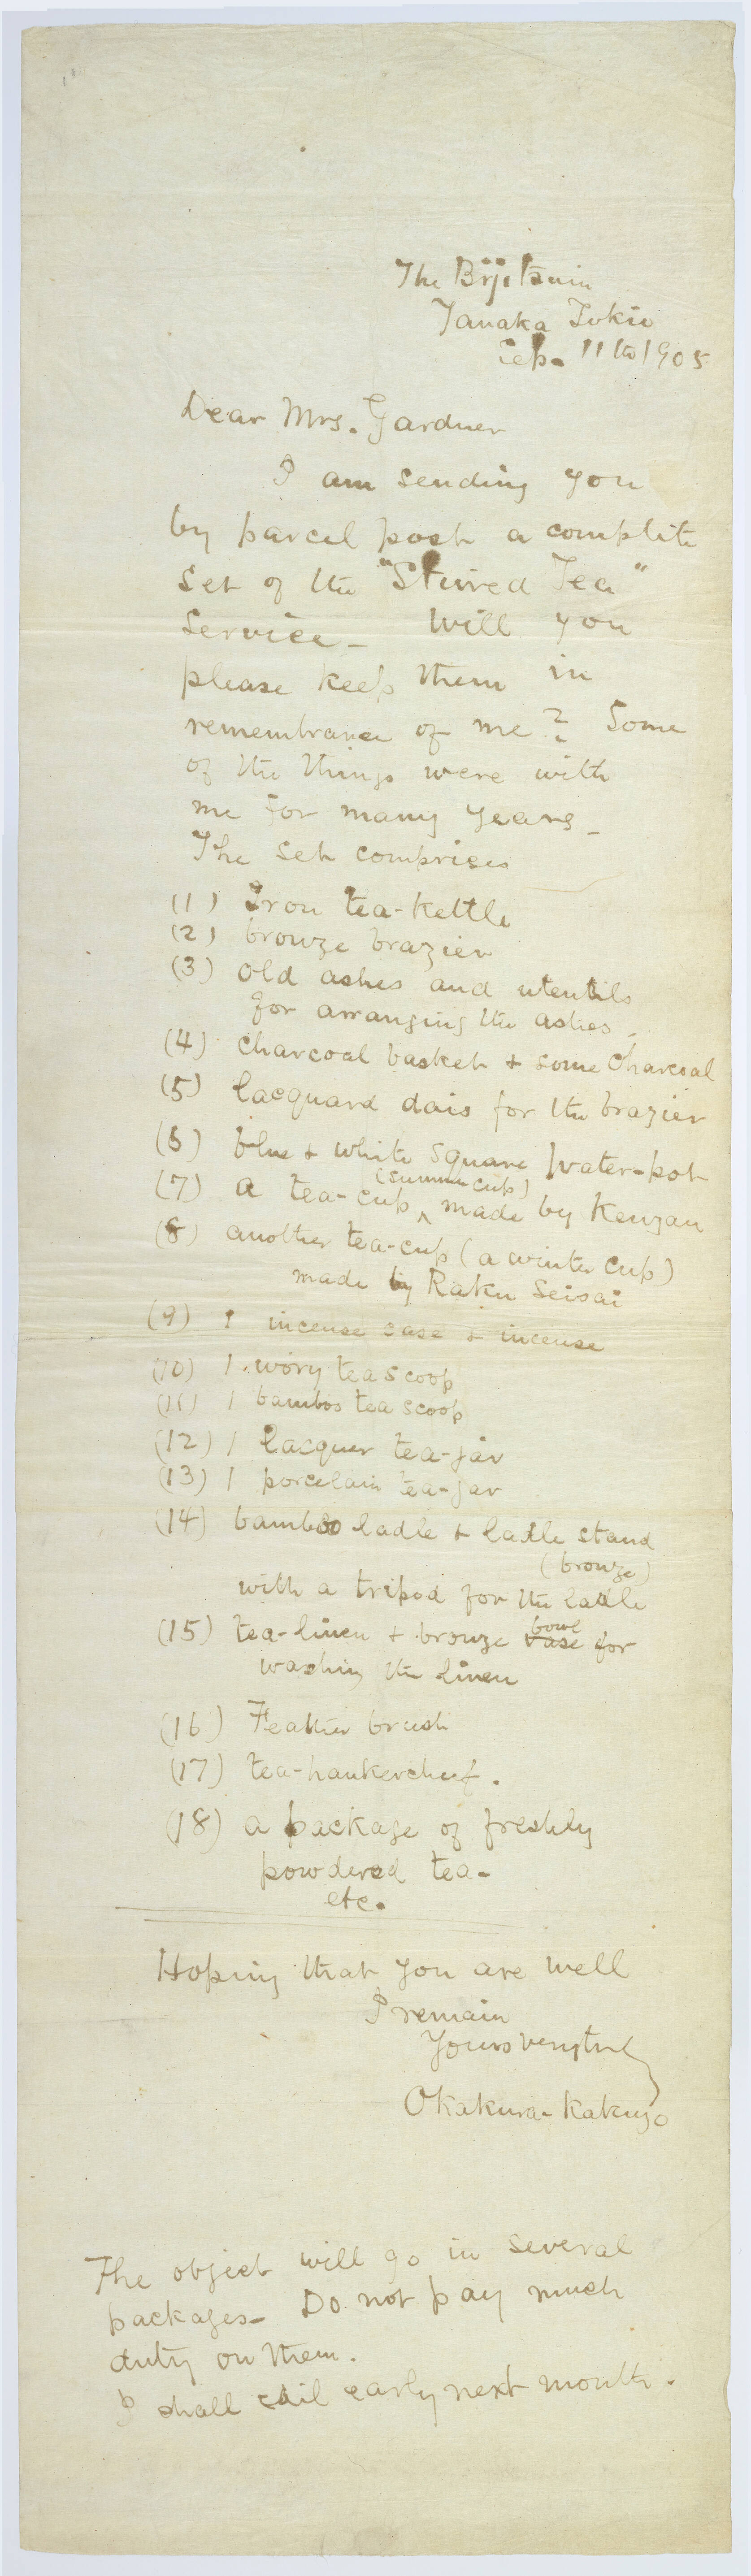 The Bijitsuin
Yanaka Tokio
Sep. 11th 1905
Dear Mrs. Gardner
I am sending you
by parcel post a complete
set of the "Stirred Tea"
Service— Will you
please keep them in
remembrance of me? Some
of the things were with
me for many years—
The set comprises
(1) Iron tea-kettle
(2) bronze brazier
(3) old ashes and utentils
for arranging the ashes—
(4) charcoal basket + some charcoal
(5) lacquard dais for the brazier
(6) blue + white square water-pot
(7) a tea-cup ^ (summer cup) made by Kenzan
(8) another tea-cup (a winter cup)
made by Raku Seisai
(9) 1 incense case + incense
(10) 1 ivory tea scoop
(11) 1 bamboo tea scoop
(12) 1 lacquer tea-jar
(13) 1 porcelain tea-jar
(14) bamboo ladle + ladle stand
(bronze)
with a tripod for the ladle
(15) tea-linen + bronze vase bowl for
washing the linen
(16) Feather brush
(17) tea-hankercheef.
(18) a package of freshly
powdered tea-
etc.
Hoping that you are well
I remain
Yours very truly
Okakura-Kakuzo
The object will go in several
packages— Do not pay much
duty on them.
I shall sail early next month.